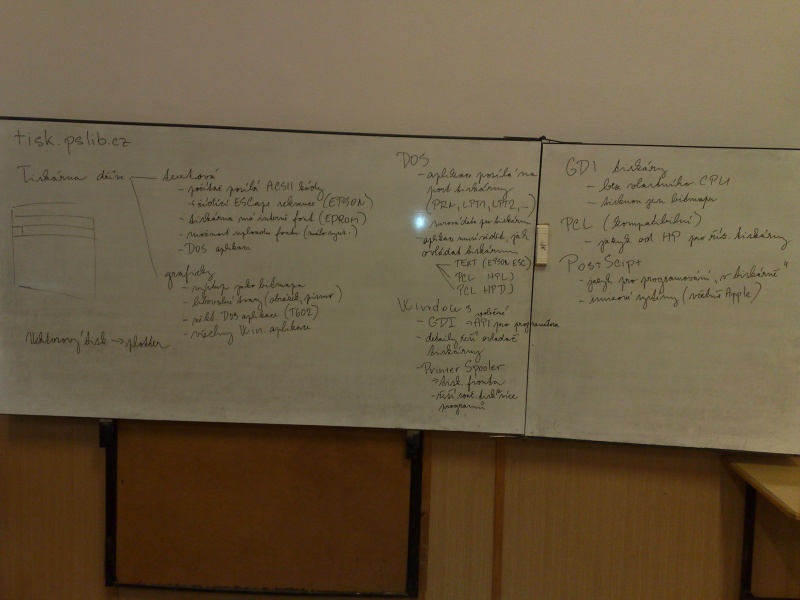 tisk.pslib.cz
Tiskárna dříve
textová
- počítač posílá ACSII kódy
- řídící ESCape sekvence (EPSON)
- tiskárna má interní font (EPROM)
- možnost uploadu fontu
- DOS aplikace
graficky
- výstup jako bitmapa
- libovolné tvary (obrázek, písmo)
- někt. DOS aplikace (T602)
- všechny Win. aplikace
Vektorový tisk → plotter
DOS
- aplikace posílá na
port tiskárny
(PRN, LPT1, LPT2, ...)
- surová data pro tiskárnu
- aplikace musí vědět, jak
ovládat tiskárnu
TEXT (EPSON ESC)
PCL HPLJ
PCL HPDJ
Windows
- GDI → API pro programátora
- detaily řeší ovladač
tiskárny
- Printer Spooler
→ tisk. fronta
- řeší souč. tisk více
programů
GDI tiskárny
- bez vlastního CPU
- tisknou jen bitmapu
PCL (kompatibilní)
- jazyk od HP pro říz. tiskárny
PostScipt
- jazyk pro programování "v tiskárně"
- unixové systémy (včetně Apple)